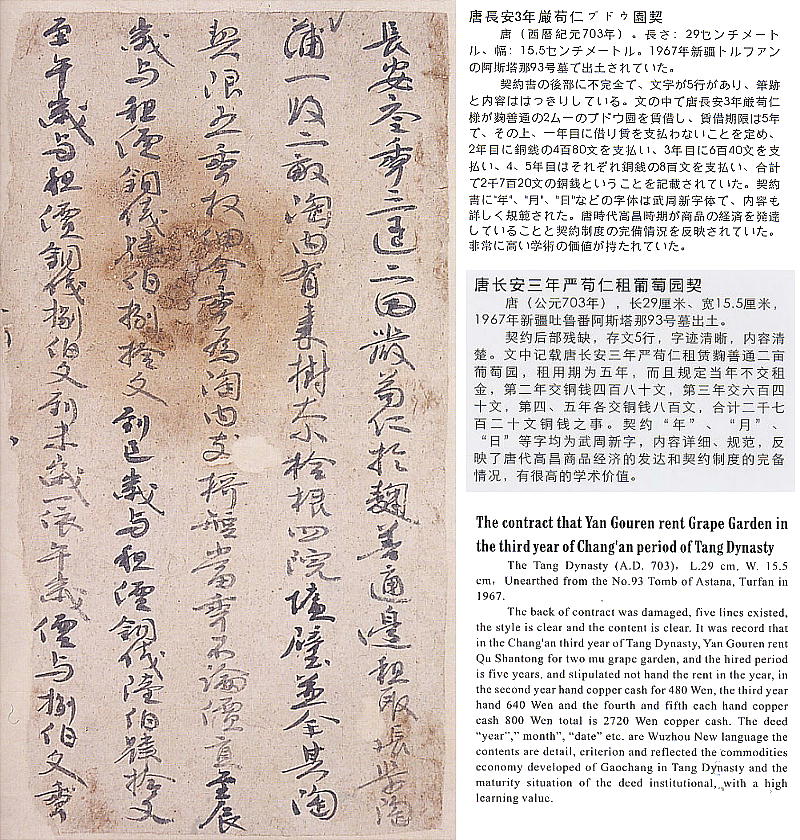 長安叁𠡦三𠥱二𡆠嚴苟仁於麴善通邊租取張渠陶
蒲一段二畝陶內有棗樹大小拾根四院墻壁並全其陶
契限五𠡦收佃今𠡦為陶內支當𠡦不論價直至辰
歲与租價銅錢肆伯捌拾文到巳歲与租價銅錢陸伯肆拾文
至午歲与租價銅錢捌伯文到未歲一依午歲價与捌伯文𠡦
唐長安3年厳荀仁ブドウ園契
唐（西暦紀元703年）。長さ：29センチメート
ル、幅：15.5センチメートル。1967年新疆トルファン
の阿斯塔那93号墓で出土されていた。
契約書の後部に不完全で、文字が5行があり、筆跡
と内容ははっきりしている。文の中で唐長安3年厳荀仁
様が麴善通の2ムーのブドウ園を賃借し、賃借期限は5年
で、その上、一年目に借り賃を支払わないことを定め、
2年目に銅銭の4百80文を支払い、3年目に6百40文を支
払い、4、5年目はそれぞれ銅銭の8百文を支払い、合計
で2千7百20文の銅銭ということを記載されていた。契約
書に"年"、"月"、"日"などの字体は武周新字体で、内容も
詳しく規範された。唐時代高昌時期が商品の経済を発達
していることと契約制度の完備情況を反映されていた。
非常に高い学術の価値が持たれていた。
唐长安三年严苟仁租葡萄园契
唐（公元703年），长29厘米、宽15.5厘米，
1967年新疆吐鲁番阿斯塔那93号墓出土。
契约后部残缺，存文5行，字迹清晰，内容清
楚。文中记载唐长安三年严苟仁租赁麴善通二亩
葡萄园，租用期为五年，而且规定当年不交租
金，第二年交铜钱四百八十文，第三年交六百四
十文，第四、五年各交铜钱八百文，合计二千七
百二十文铜钱之事。契约“年”、“月”、
“日”等字均为武周新字，内容详细、规范，反
映了唐代高昌商品经济的发达和契约制度的完备
情况，有很高的学术价值。
The contract that Yan Gouren rent Grape Garden in
the third year of Chang'an period of Tang Dynasty
The Tang Dynasty (A.D. 703), L.29 cm, W. 15.5
cm, Unearthed from the No.93 Tomb of Astana, Turfan in
1967.
The back of contract was damaged, five lines existed,
the style is clear and the content is clear. It was record that
in the Chang'an third year of Tang Dynasty, Yan Gouren rent
Qu Shantong for two mu grape garden, and the hired period
is five years, and stipulated not hand the rent in the year, in
the second year hand copper cash for 480 Wen, the third year
hand 640 Wen and the fourth and fifth each hand copper
cash 800 Wen total is 2720 Wen copper cash. The deed
“year”,” month”, “date” etc. are Wuzhou New language the
contents are detail, criterion and reflected the commodities
economy developed of Gaochang in Tang Dynasty and the
maturity situation of the deed institutional, with a high
learning value.